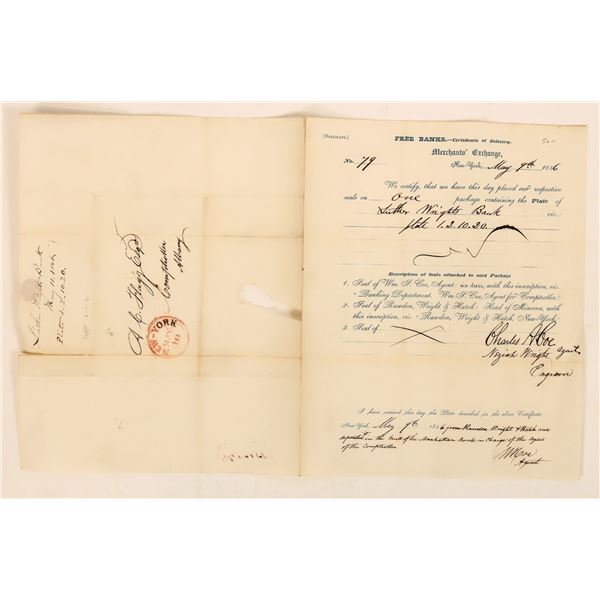 Luther Wright's Bank
May 11. 1846
Plate 1.2.10.20.
A. C. Flagg Esqr
Comptroller
Albany
NEW-YORK
MAY
10
[DUPLICATE.]
FREE BANKS.—Certificate of Delivery.
Merchants' Exchange,
No. 79
New-York, May 9th 1846
We certify, that we have this day placed our respective
seals on One package containing the Plate of
Luther Wrights Bank viz:
plate 1.2.10.20.
Description of Seals attached to said Package
1. Seal of Wm. S. Coe, Agent: with this inscription, viz.
"Banking Department. Wm. S. Coe, Agent for Comptroller."
2. Seal of Rawdon, Wright & Hatch: Head of Minerva, with
this inscription, viz: "Rawdon, Wright & Hatch, New-York."
3. Seal of
Charles A Coe
Agent
Neziah Wright
Engraver
I have received this day the Plate described in the above Certificate.
New-York, May 9th 1846 from Rawdon Wright & Hatch and
deposited in the vault of the Manhattan Bank in charge of the Agent
of the Comptroller
WS Coe
Agent